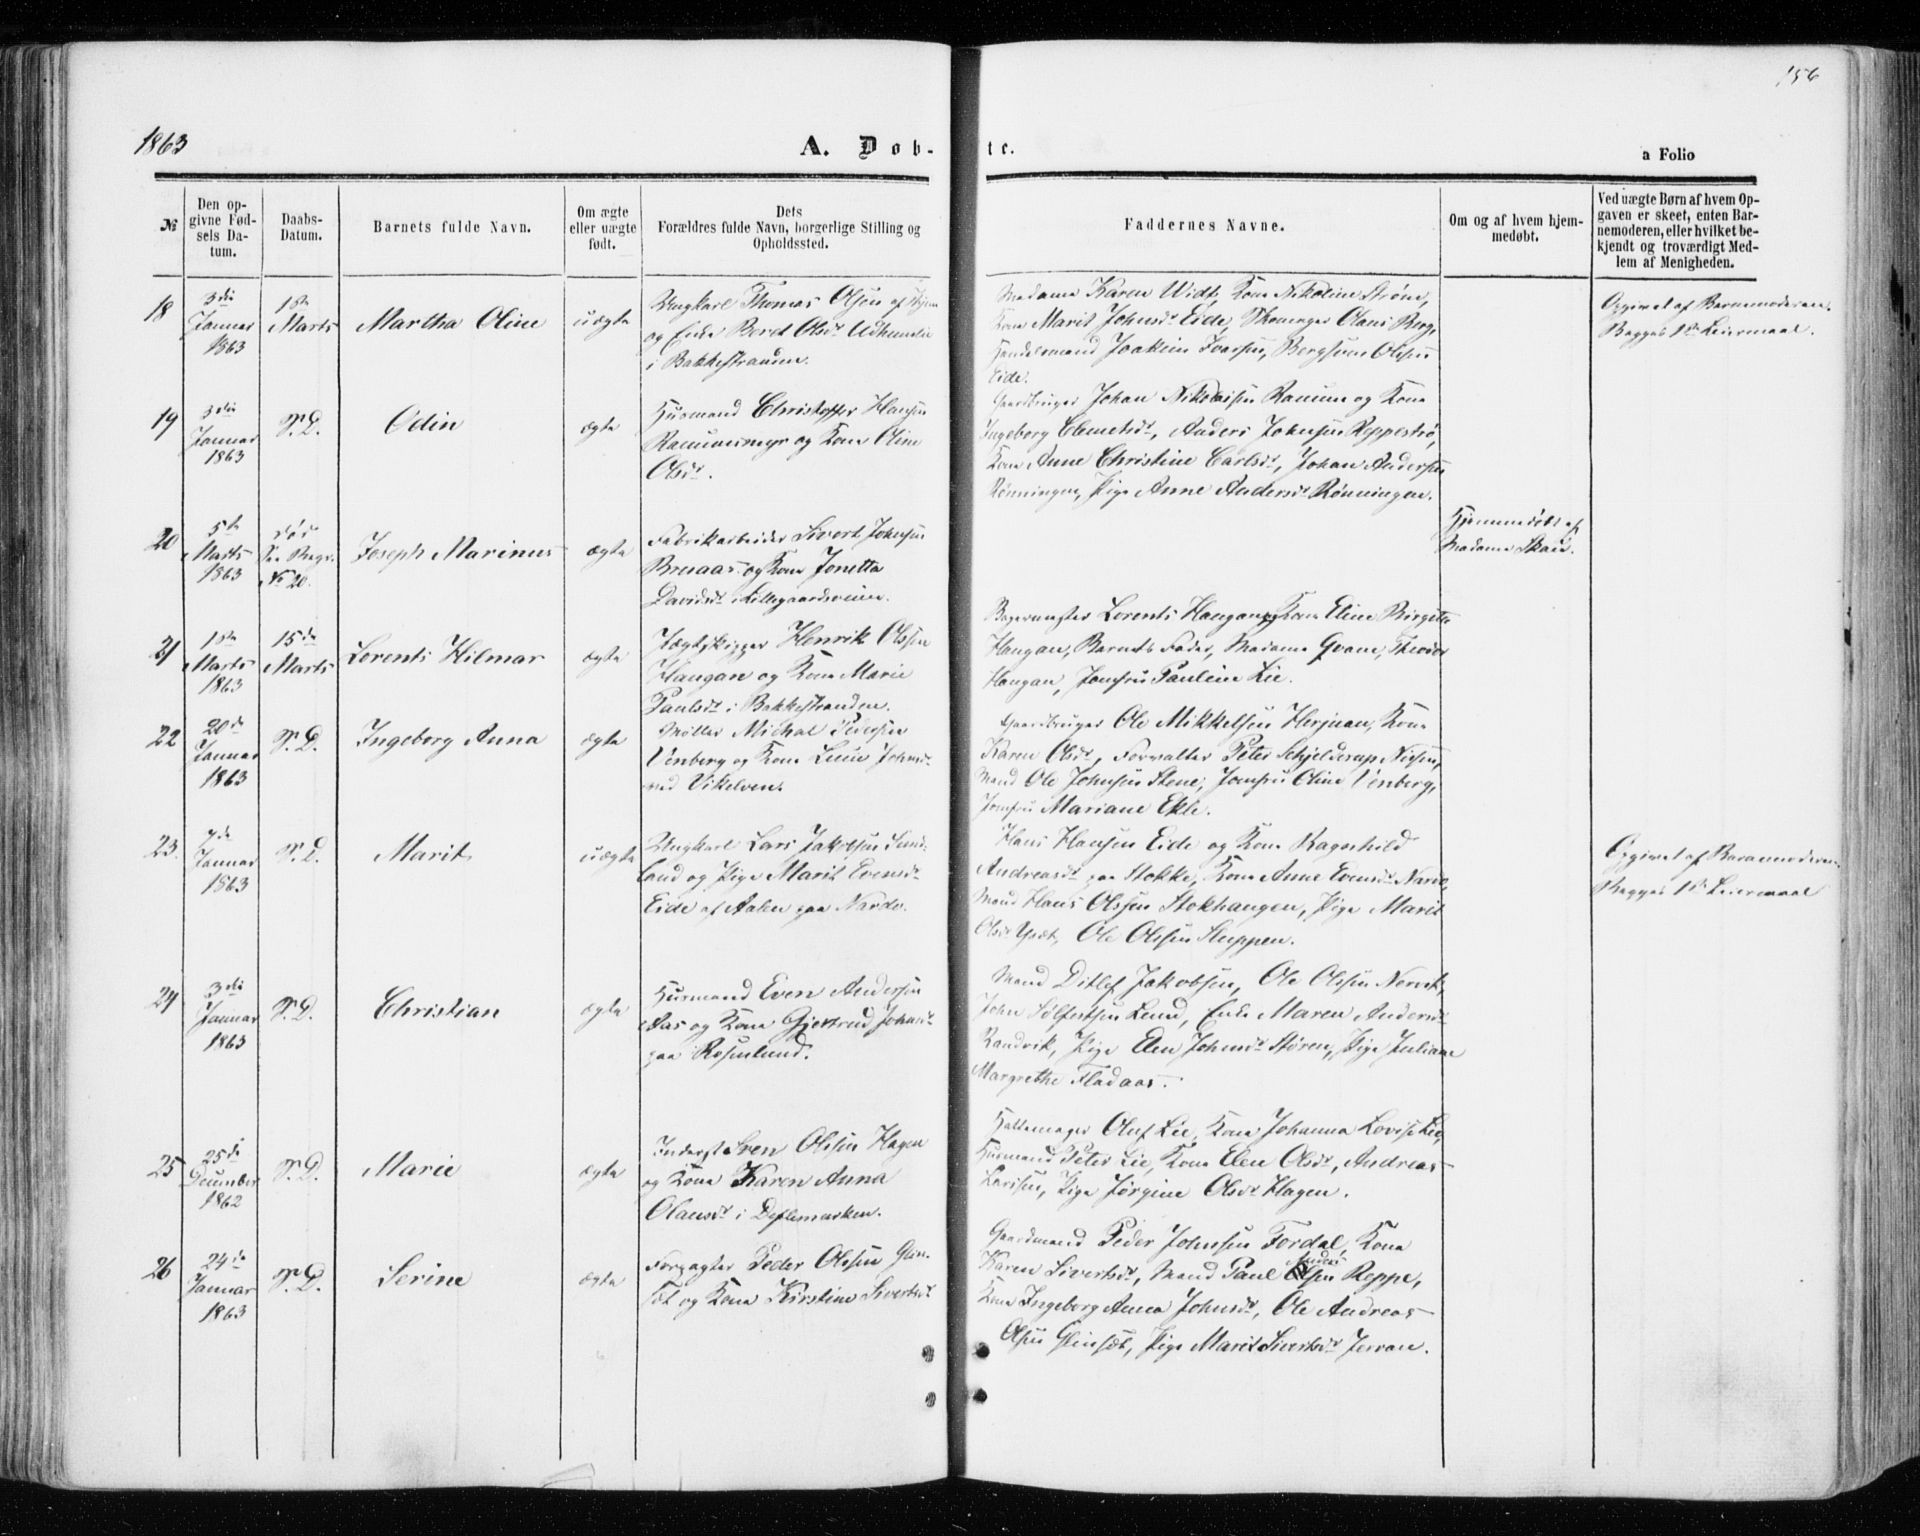 156
1863
A. Døb-
te.
a Folio
№
Den op-
givne Fød-
sels Da-
tum.
Daabs-
Datum.
Barnets fulde Navn.
Om ægte
eller uægte
født.
Dets
Forældres fulde Navn, borgerlige Stilling og
Opholdssted.
Faddernes Navne.
Om og af hvem hjem-
medøbt.
Ved uægte Børn af hvem Op-
gaven er skeet, enten Bar-
nemoderen, eller hvilket be-
kjendt og troværdigt Med-
lem af Menigheden.
18
3die
Januar
1863
1ste
Marts
Martha Oline
uægte
Ungkarl Thomas Olsen af
og Enke Beret Olsdt
i Bakkestranden.
Madame Karen Widt, Kone Nikoline Strøm,
Kone Marit Johnsdt Eide, Olaus Berg,
Handelsmand Joakim Iversen, Olsen
Eide.
Opgivet af Barnemoderen.
Begges 1ste Leiermaal.
19
3die
Januar
1863
S.D.
Odin
ægte
Husmand Christoffer Hansen
Ranumsmyr og Kone Oline
Olsdt.
Gaardbruger Johan Nikolaisen Ranum og Kone
Ingeborg Clemetsdt, Anders Johnsen Reppestrø,
Kone Anne Christine Carlsdt, Johan Andersen
Rønningen, Pige Anne Andersdt Rønningen.
20
5te
Marts
1863
død
See Regr.
No 20.
Joseph Marinus
ægte
Fabrikarbeider Sivert Johnsen
Bruaas og Kone Jonetta
Davidsdt i Lillegaardsveien.
Hjemmedøbt af
Madame Skari.
21
1ste
Marts
1863
15de
Marts
Lorents Hilmar
ægte
Jægtskipper Henrik Olsen
Haugan og Kone Marie
Paulsdt i Bakkestranden.
Bagermester Lorents Haugan og Kone Eline Birgitte
Haugan, Barnets Fader, Madame Qvam, Theodor
Haugan, Jomfru Pauline Lie.
22
20de
Januar
1863
S.D.
Ingeborg Anna
ægte
Møller Michal Pedersen
Venberg og Kone Line Johnsdt
ved Vikelven.
Gaardbruger Ole Mikkelsen Herjuan, Kone
Karen Olsdt, Forvalter Peter Schjelderup Nissen,
Mand Ole Johnsen Stene, Jomfru Oline Venberg,
Jomfru Mariane Ekle.
23.
7de
Januar
1863
S.D.
Marit
uægte
Ungkarl Lars Jakobsen Sund-
land og Pige Marit Evensdt
Eide af Aalen paa Nardo.
Hans Hansen Eide og Kone Ragnhild
Andreasdt paa Stokke, Kone Anne Evensdt Nardo,
Mand Hans Olsen Stokhaugen, Pige Marit
Olsdt Ysæt, Ole Olsen Sluppen.
Opgivet af Barnemoderen
Begges 1ste Leiermaal
24
3die
Januar
1863
S.D.
Christian
ægte
Husmand Even Andersen
Aas og Kone Gjertrud Johnsdt
paa Rosenlund.
Mand Ditlef Jakobsen, Ole Olsen
John Sølfestsen Lund, Enke Maren Andersdt
Randvik, Pige Elen Johnsdt Støren, Pige Juliane
Margrethe Fladaas.
25
25de
December
1862
S.D.
Marie
ægte
Inderst Sven Olsen Hagen
og Kone Karen Anna
Olausdt i Deflemarken.
Hattemager Oluf Lie, Kone Johanna Lovise Lie,
Husmand Peter Lie, Kone Elen Olsdt, Andreas
Larsen, Pige Jørgine Olsdt Hagen.
26
24de
Januar
1863
S.D.
Serine
ægte
Forpagter Peder Olsen Glin-
sæt og Kone Kirstine Sivertsdt
Gaardmand Peder Johnsen Fordal, Kone
Karen Sivertsdt, Mand Paul Andersen Reppe,
Kone Ingeborg Anna Johnsdt, Ole Andreas
Olsen Glinsæt, Pige Marit Sivertsdt Jervan.